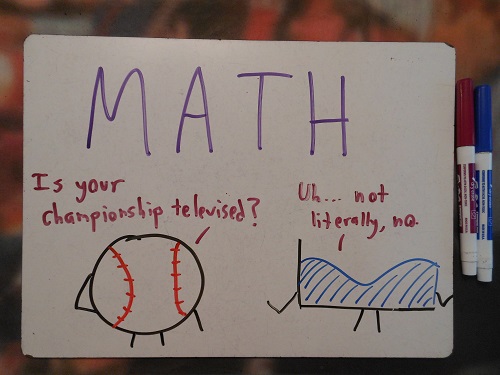 MATH
Is your
championship televised?
Uh... not
literally, no.